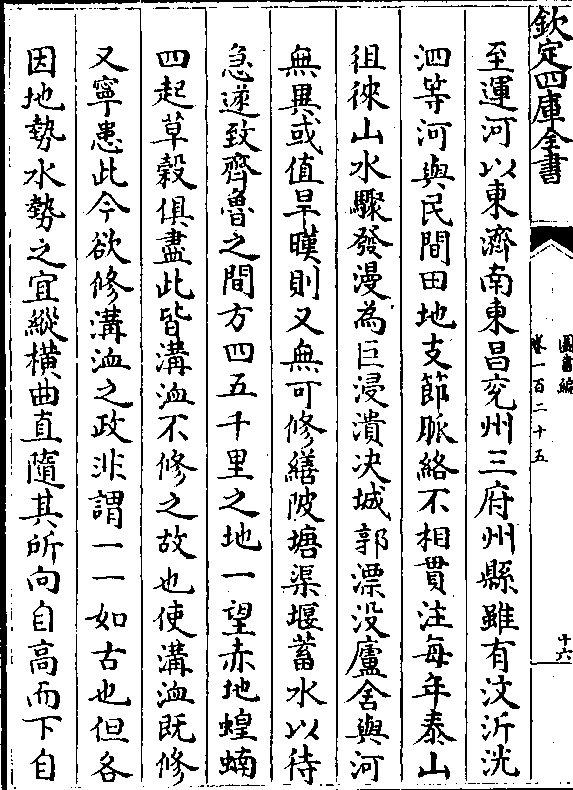 欽定四庫全書
圖書編
卷一百二十五
十六
至運河以東濟南東昌兖州三府州縣雖有汶沂洸
泗等河與民間田地支節脈絡不相貫注每年泰山
徂徠山水驟發漫為巨浸潰决城郭漂没廬舍與河
無異或值旱暵則又無可修繕陂塘渠堰蓄水以待
急遂致齊魯之間方四五千里之地一望赤地蝗蝻
四起草穀俱盡此皆溝洫不修之故也使溝洫既修
又寧患此今欲修溝洫之政非謂一一如古也但各
因地勢水勢之宜縱橫曲直隨其所向自高而下自